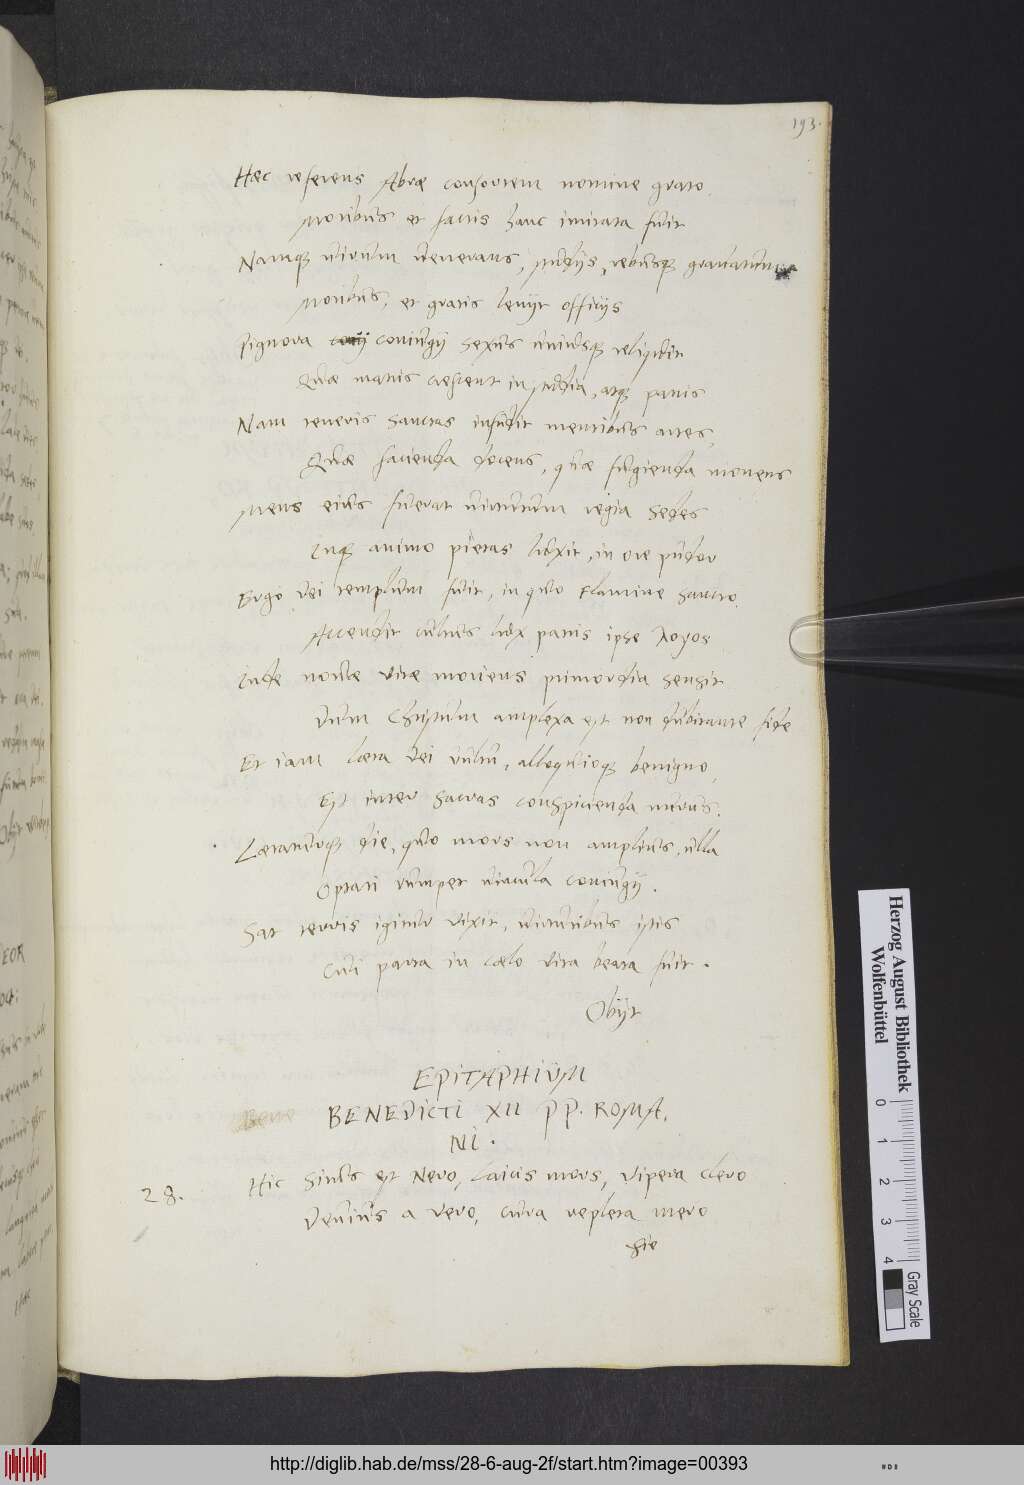 193.
Hæc referens Abræ consortem nomine grato.
Moribus et factis hanc imitata fuit
Namq virum venerans, studijs, rebusq gravatum
Moribus, et gratis levijt officijs
Pignora coniugij sexus uniusq reliquit
Quæ matris crescent in studia, atq patris
Nam teneris sanctas infudit mentibus artes,
Quæ facienda docens, quæ fugienda monens
Mens eius fuerat virtutum regia sedes
Inq animo pietas luxit, in ore pudor
Ergo Dei templum fuit, in quo Flamine sancto.
Accendit cultus lux patris ipse λογος
Inde novæ vitæ moriens primordia sensit
Dum Christum amplexa est non dubitante fide
Et iam læta Dei vultu, alloquioq benigno,
Est inter sacras conspicienda nurus.
Læranturq die, quo mors non amplius, ulla
Optati rumpet vincula coniugij.
Sat terris igitur vixit, virtutibus istis
Cui parta in cælo vita beata fuit.
Obijt
EPITAPHIUM
BENEDICTI XII PP. ROMA,
NI.
28. Hic situs est Nero, laicis mors, vipera clero
Devius a vero, cuva repleta mero
Hæc
Herzog August Bibliothek
Wolfenbüttel
0 1 2 3 4
Gray Scale
http://diglib.hab.de/mss/28-6-aug-2f/start.htm?image=00393